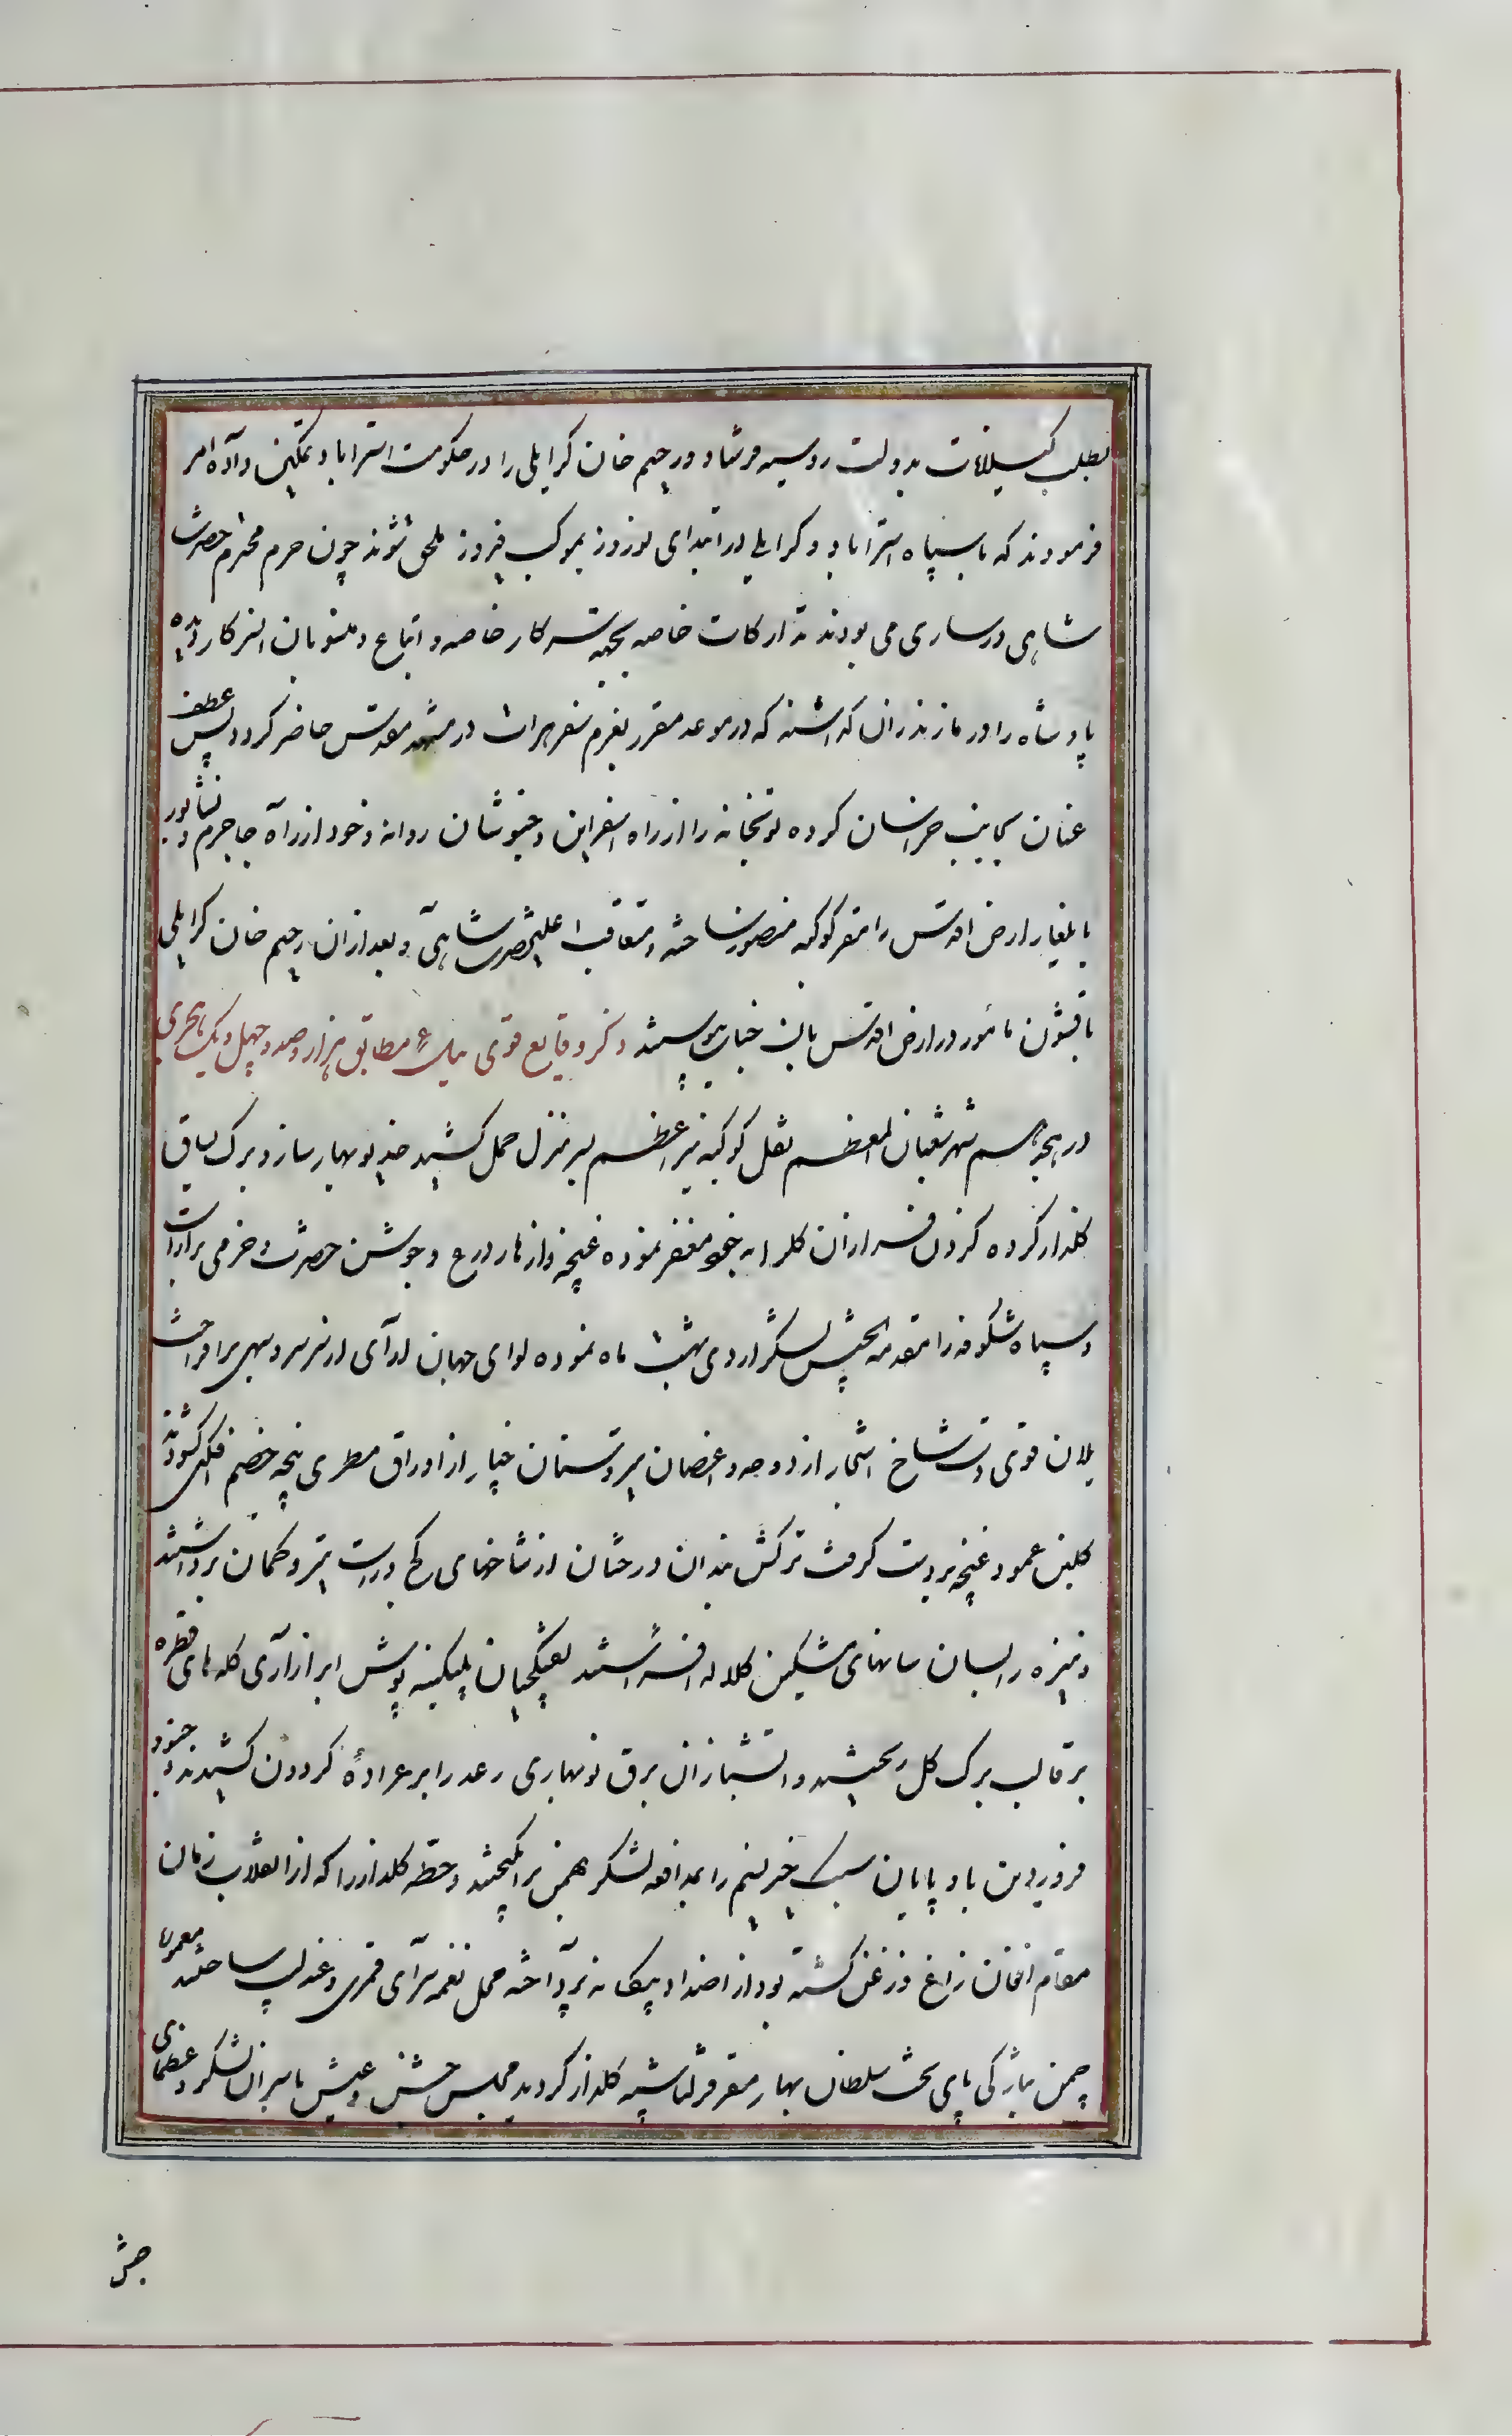 بطلب کیسلانات بدولت روسیه فرستاد و رحیم خان کرایلی را در حکومت استراباد تمکین داده امر
فرمودند که با سپاه استراباد و کرایلی در ابتدای نوروز بموکب فیروز ملحق شوند چون حرم محترم حضرت
شاهی در ساری می بودند تدارکات خاصه بجهة سرکار خاصه و اتباع و منسوبان انسرکار دیده
پادشاه را در مازندران گذاشته که در موعد مقرر بعزم سفر هرات در مشهد مقدس حاضر گردد پس عطف
عنان بجانب خراسان کرده توپخانه را از راه اسفراین و خبوشان روانه و خود از راه جاجرم و نشابور
بایلغار ارض اقدس را مقر کوکبه منصور ساخته و متعاقب اعلیحضرت شاهی و بعد از ان رحیم خان کرایلی
با قشون مامور در ارض اقدس بان جناب پیوستند ذکر وقایع قوی ئیل مطابق هزار و صد و چهل و یک هجری
در هیجدهم شهر شعبان المعظم نقل کوکبه نیر اعظم بسر منزل حمل کشید خدیو بهار ساز و برک یساق
کلزار کرده کردن فرازان کل را به خود مغفر نموده غنچه و ازهار درع و جوشن حضرت و خرمی برآراست
و سپاه شکوفه را مقدمة الجیش لشکر اردی بهشت ماه نموده لوای جهان آرای از سرو سهی برافراخت
یلان قوی دست شاخ اشجار از دوحه و اغصان سردستان چنار از اوراق مطری پنجه خصم افکنی کشودند
کلبن عمود غنچه بر دست کرفت ترکش بندان درختان از شاخهای کج و راست تیر و کمان برداشتند
و نیزه را بسان سانهای مشکین کلاله افراشتند تفنکچیان پلنکینه پوش ابر آزاری کله های قطره
بر قالب برک کل ریختند و آتشبازان برق نوبهاری رعد را بر عرادۀ کردون کشیدند و جنود
فروردین باد پایان سبک خیز نسیم را بمدافعه لشکر بهمن برانکیختند و خطه کلزار را که از انقلاب زمان
مقام افغان زاغ و زغن کشته بود از اضداد بیکانه پرداخته محل نغمه سرای قمری و عندلیب ساختند معموره
چمن بتازکی پای تخت سلطان بهار و مقر قزلباشیه کلزار کردید مجلس جشن و عیش با سران لشکر و عظمای
جش